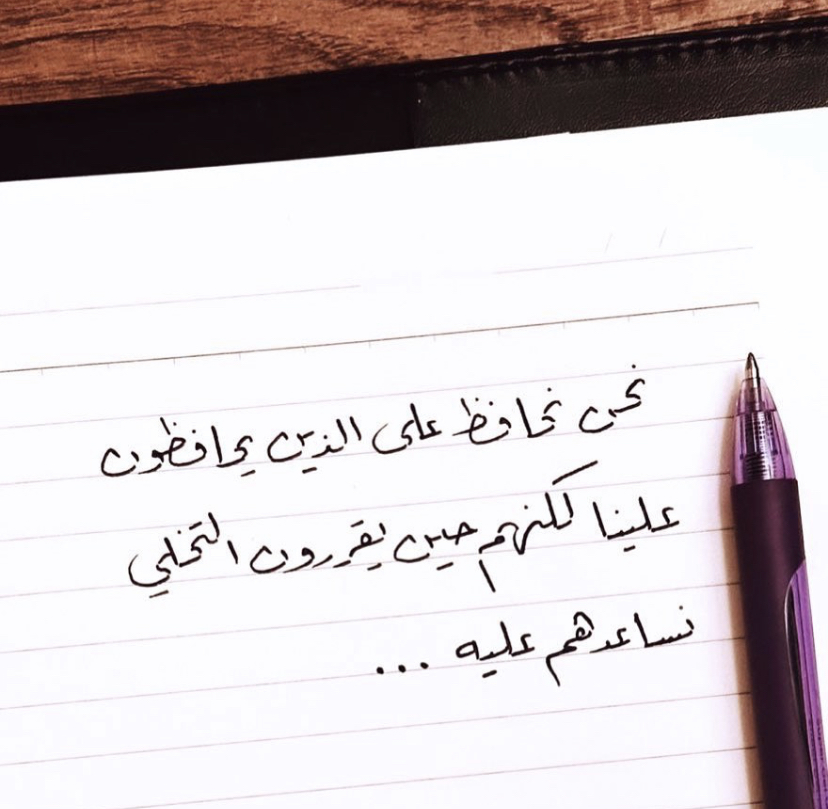 نحن نحافظ على الذين يحافظون
علينا لكنهم حين يقررون التخلي
نساعدهم عليه ...